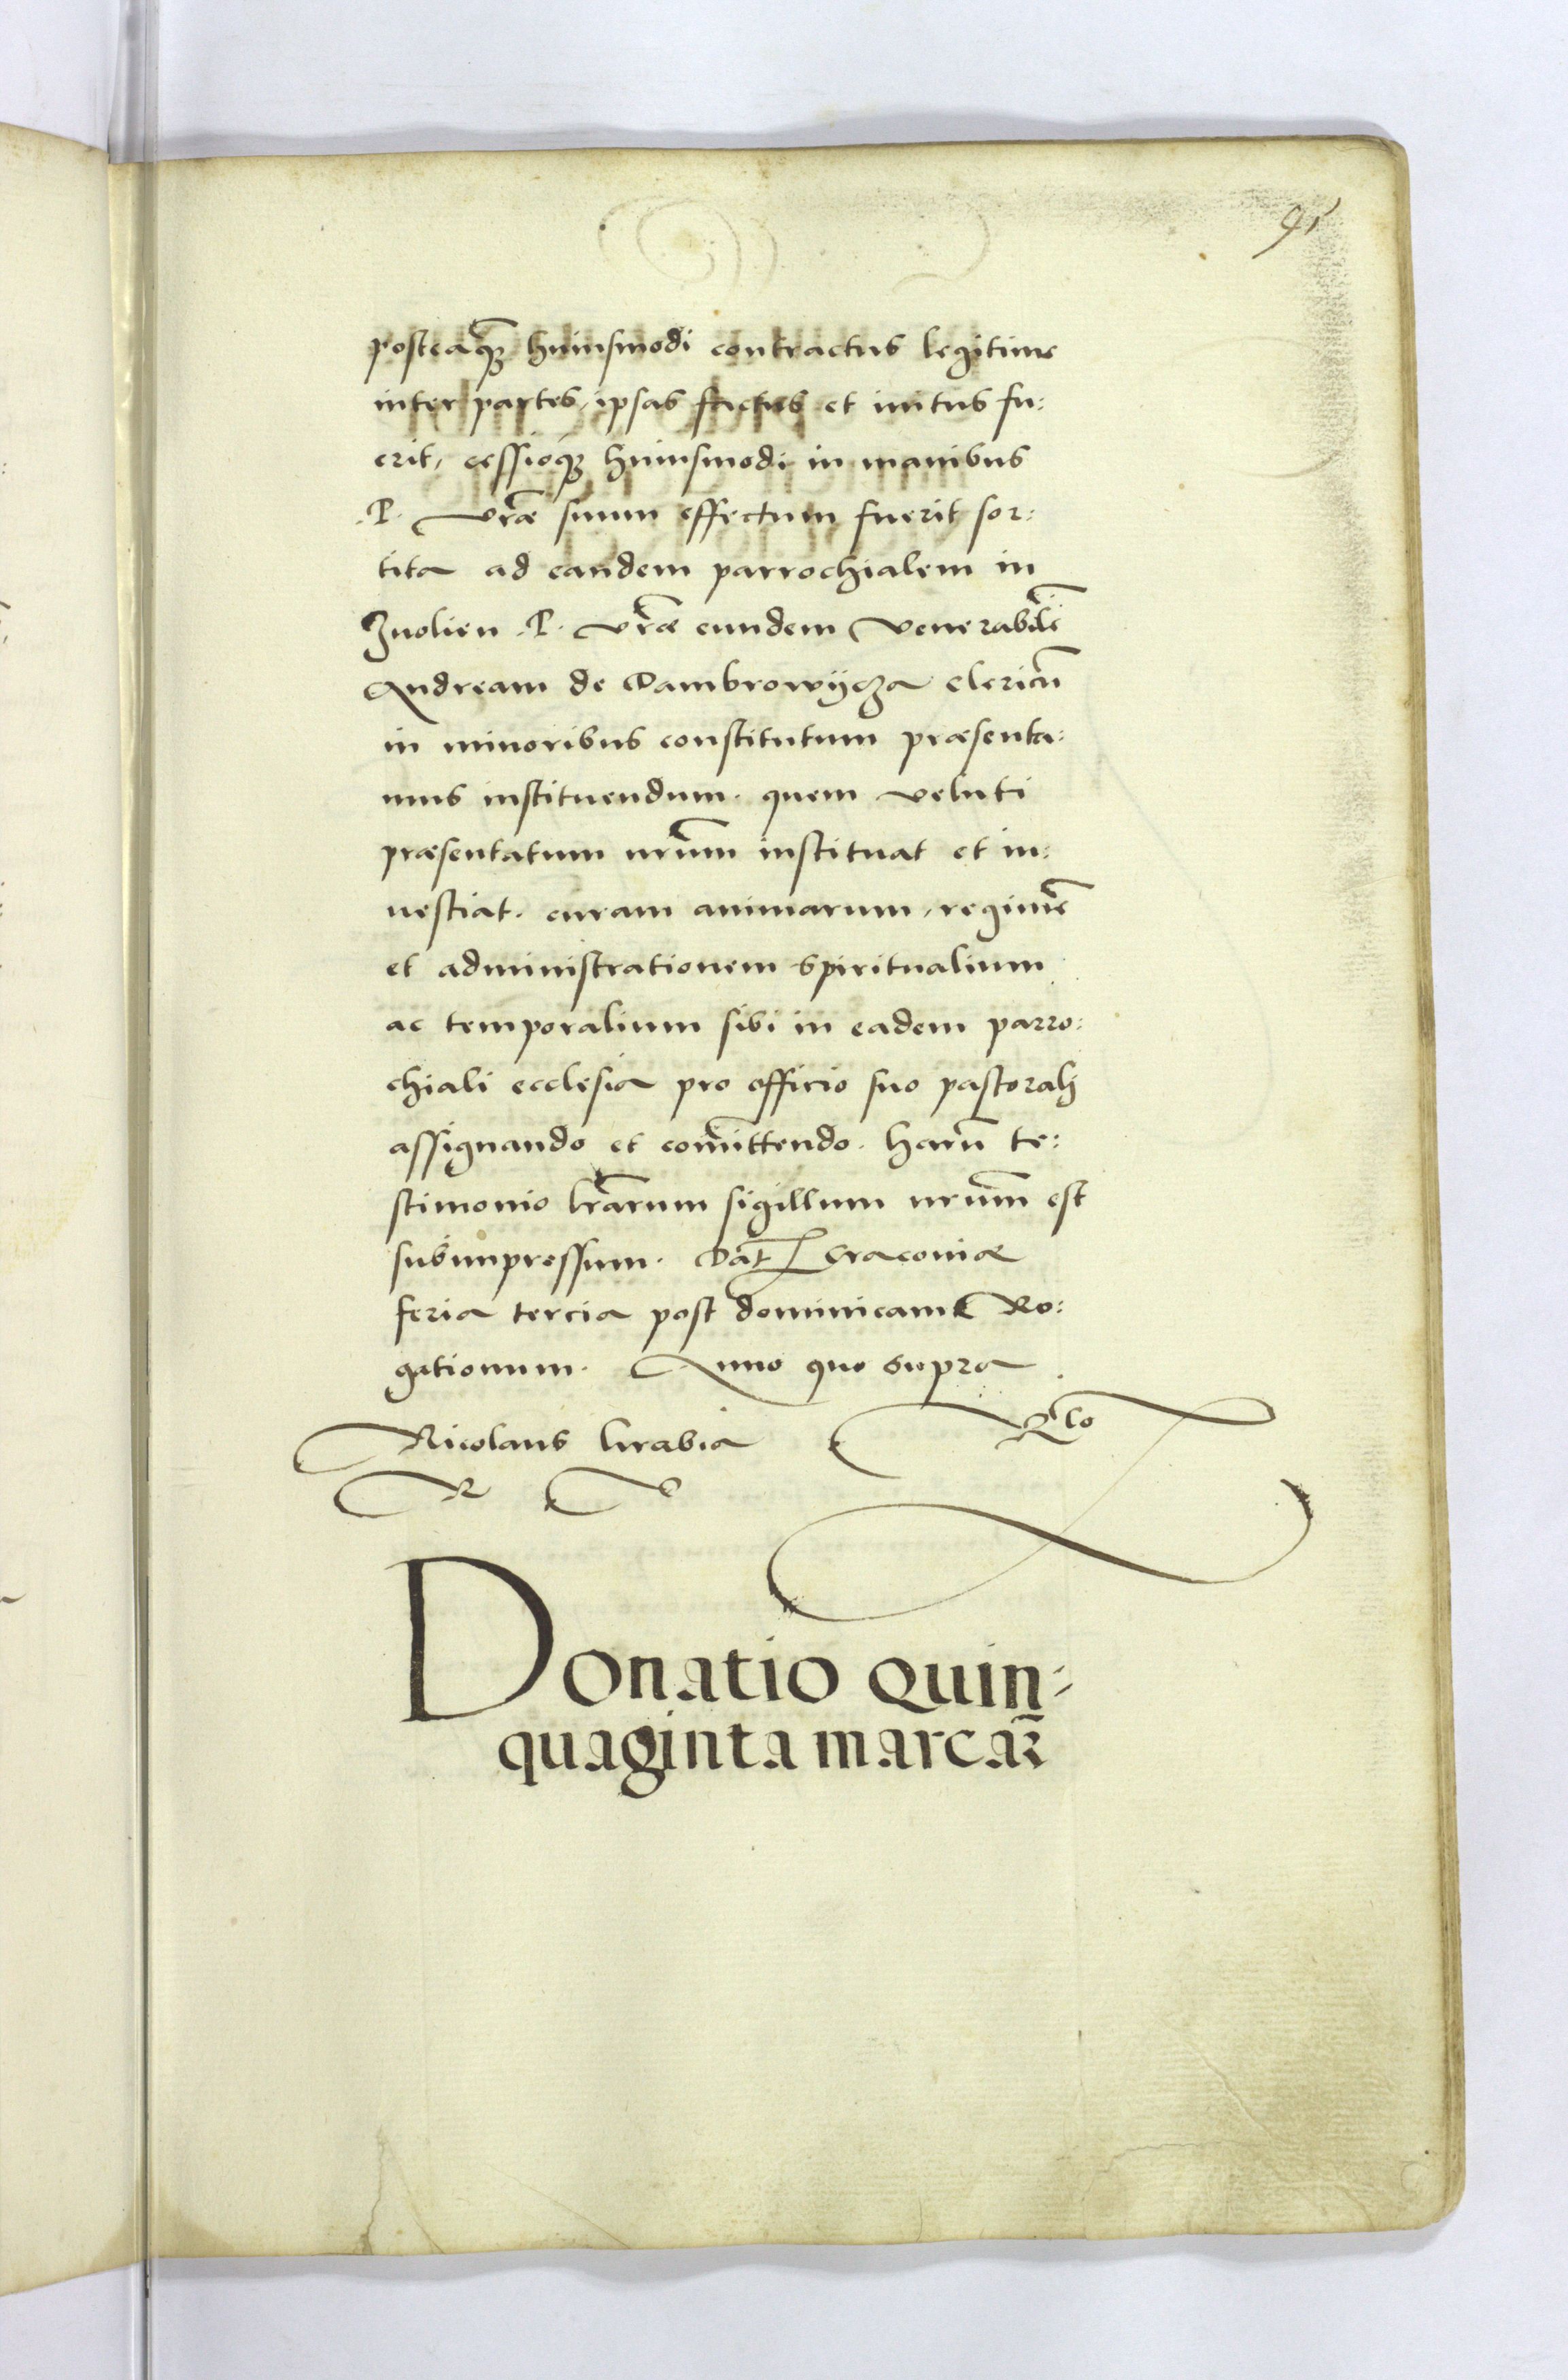 91
posteaq̃ꝫ huiusmodi contractus legitime
inter partes, ipsas factus et initus fu:
erit, cessioqꝫ huiusmodi in manibus
.P. vr̃æ suum effectum fuerit sor:
tita ad eandem parrochialem in
Zuolien .P. vr̃æ eundem venerabilẽ
Andream de Dambrowycza clericũ
in minoribus constitutum præsenta:
mus instituendum. quem veluti
præsentatum nrũm instituat et in:
uestiat. curam animarum, regimẽ
et administrationem spiritualium
ac temporalium sibi in eadem parro:
chiali ecclesia pro officio suo pastorali
assignando et com̃ittendo. harũ te:
stimonio lr̃arum sigillum nrũm est
subimpressum. Dat̃ Cracouiæ
feria tercia post dominicam Ro:
gationum. Anno quo supra
Nicolaus hrabia
R
Donatio quin-
quaginta marcaꝝ̃